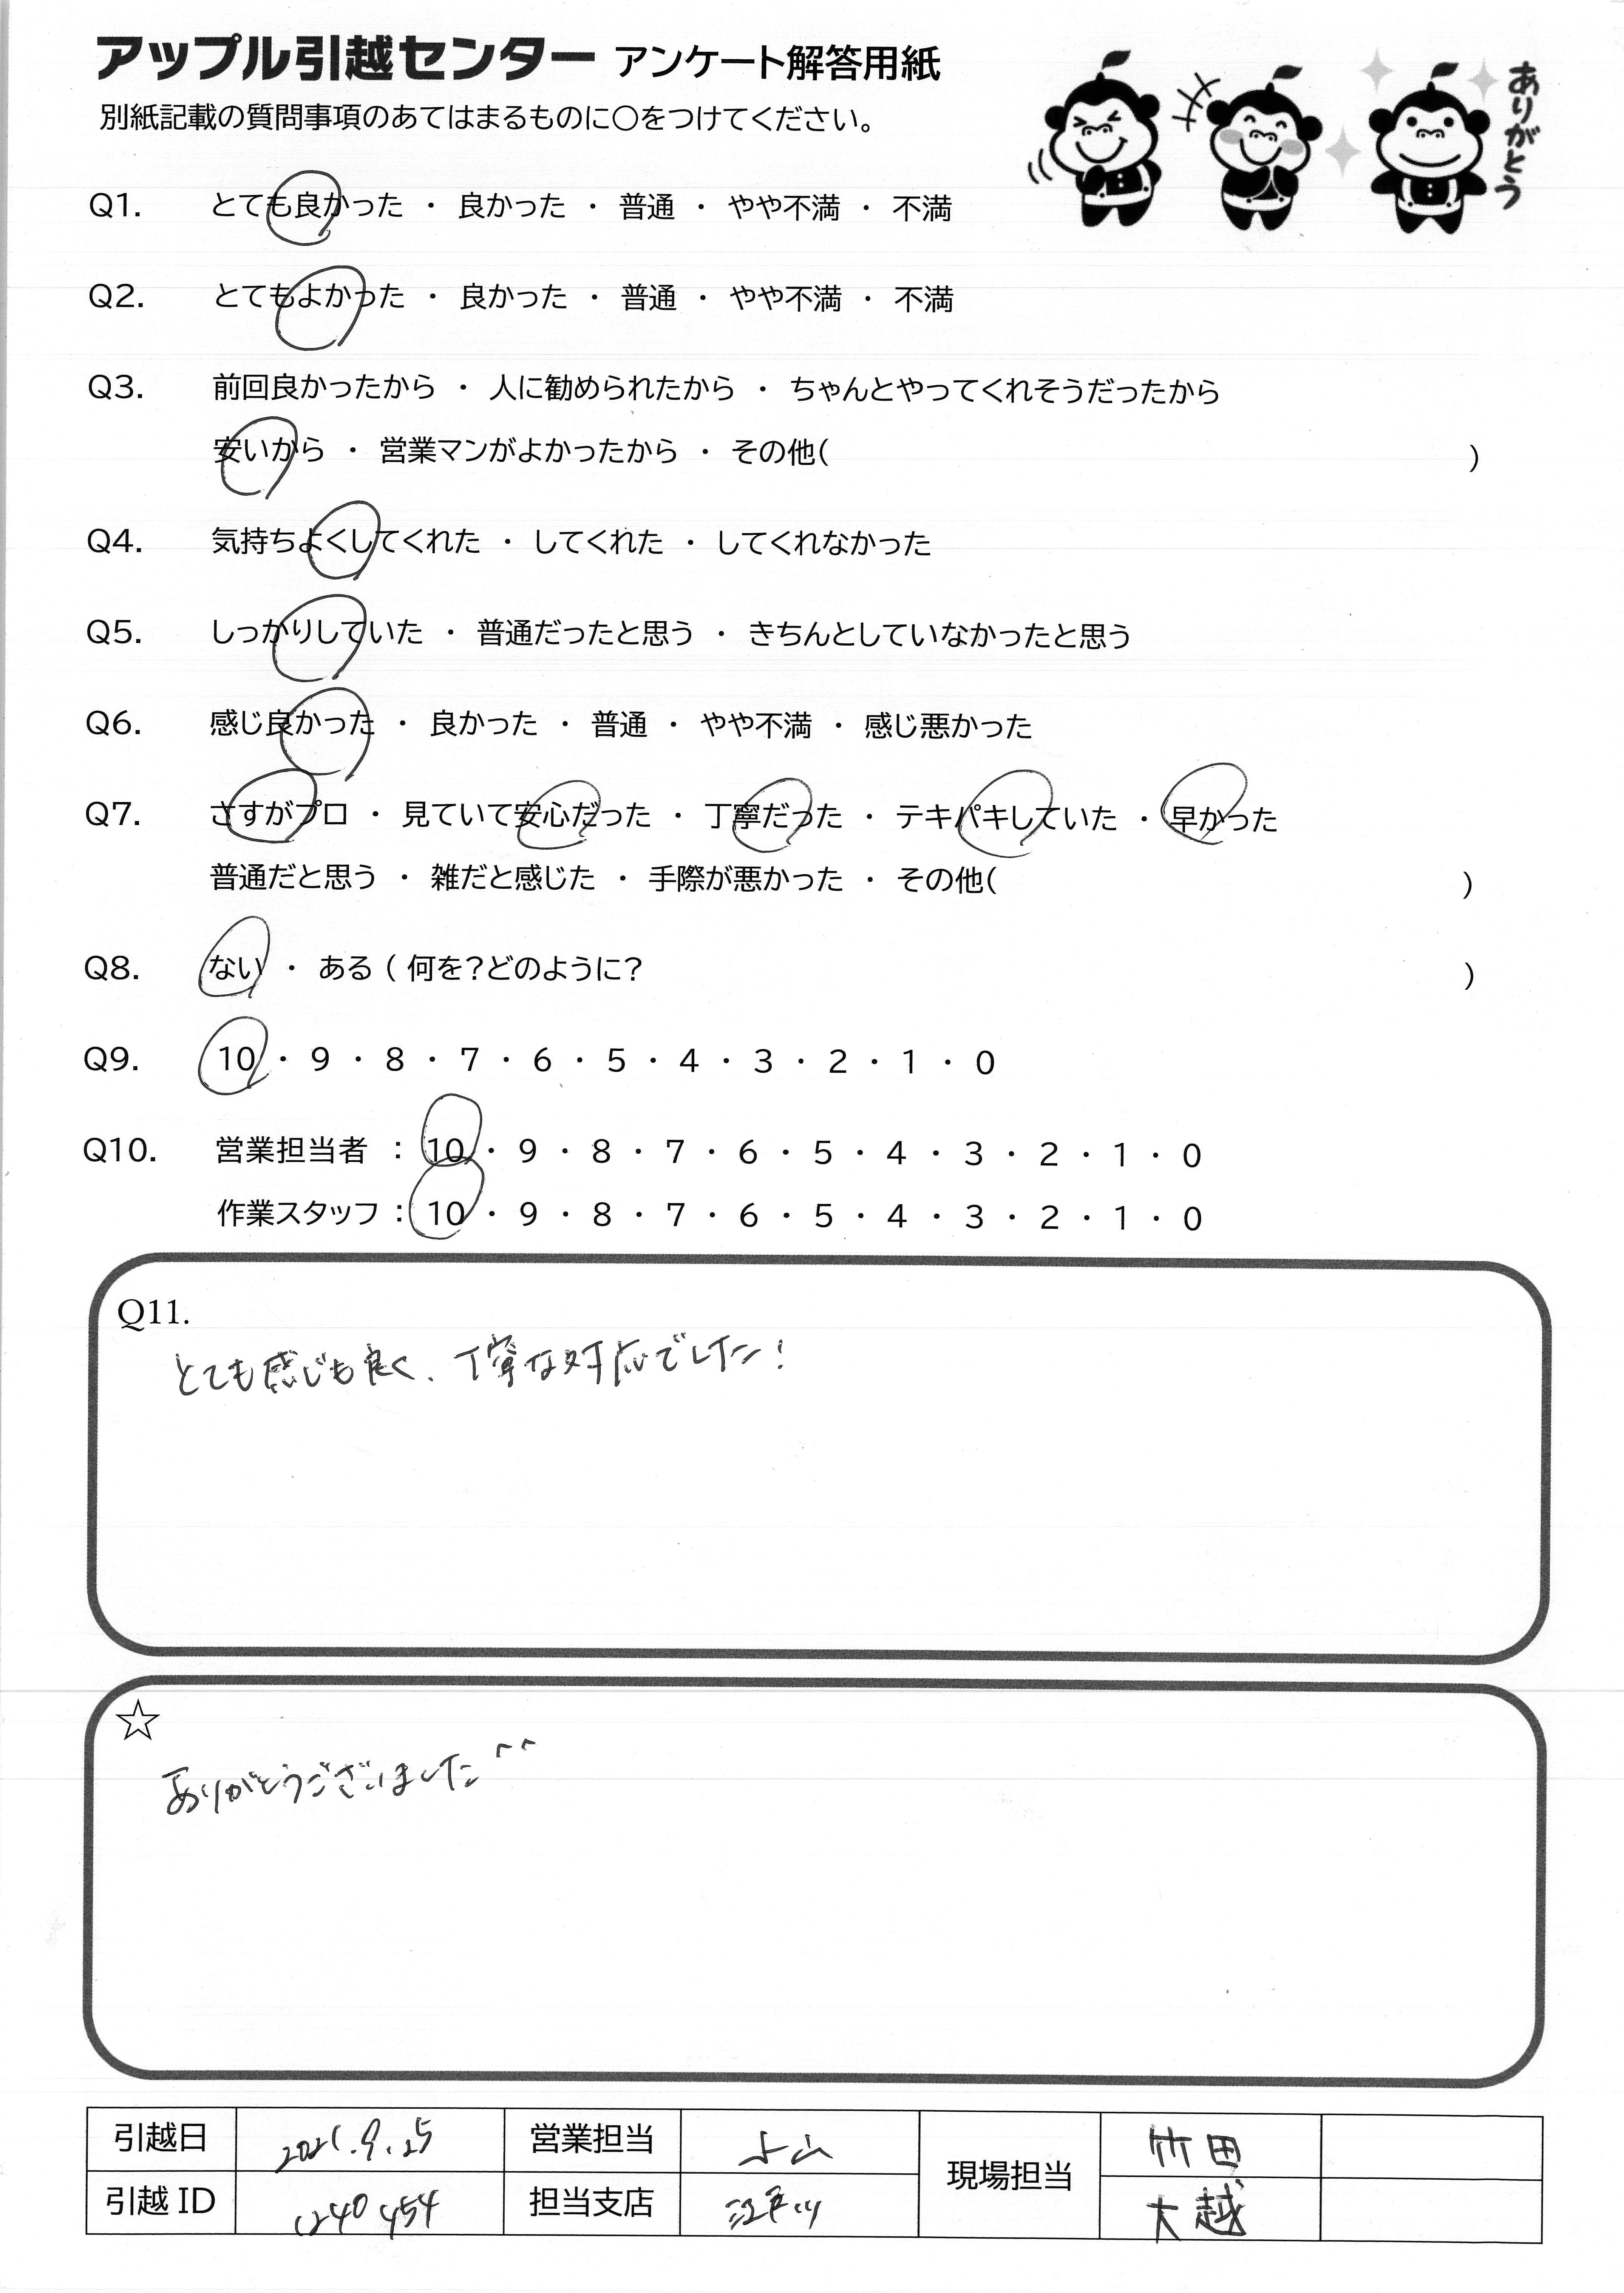 アップル引越センター アンケート解答用紙
別紙記載の質問事項のあてはまるものに○をつけてください。
ありがとう
Q1. とても良かった ・ 良かった ・ 普通 ・ やや不満 ・ 不満
Q2. とてもよかった ・ 良かった ・ 普通 ・ やや不満 ・ 不満
Q3. 前回良かったから ・ 人に勧められたから ・ ちゃんとやってくれそうだったから
安いから ・ 営業マンがよかったから ・ その他( )
Q4. 気持ちよくしてくれた ・ してくれた ・ してくれなかった
Q5. しっかりしていた ・ 普通だったと思う ・ きちんとしていなかったと思う
Q6. 感じ良かった ・ 良かった ・ 普通 ・ やや不満 ・ 感じ悪かった
Q7. さすがプロ ・ 見ていて安心だった ・ 丁寧だった ・ テキパキしていた ・ 早かった
普通だと思う ・ 雑だと感じた ・ 手際が悪かった ・ その他( )
Q8. ない ・ ある ( 何を?どのように? )
Q9. 10 ・ 9 ・ 8 ・ 7 ・ 6 ・ 5 ・ 4 ・ 3 ・ 2 ・ 1 ・ 0
Q10. 営業担当者 : 10 ・ 9 ・ 8 ・ 7 ・ 6 ・ 5 ・ 4 ・ 3 ・ 2 ・ 1 ・ 0
作業スタッフ : 10 ・ 9 ・ 8 ・ 7 ・ 6 ・ 5 ・ 4 ・ 3 ・ 2 ・ 1 ・ 0
Q11.
とても感じも良く、丁寧な対応でした!
☆
ありがとうございました^^
引越日 2021.9.25 営業担当 現場担当 竹田
引越 ID 担当支店 江戸川 大越